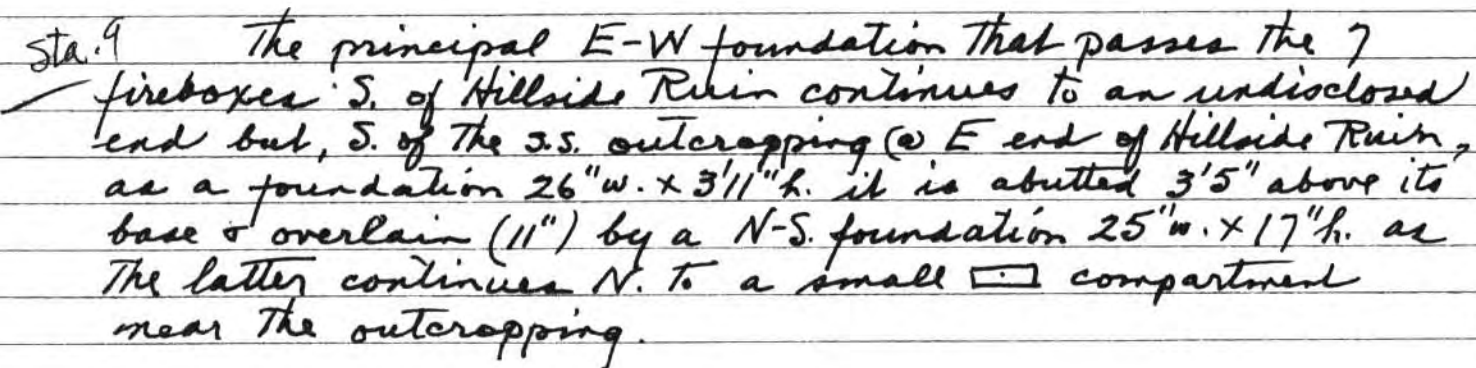 Sta. 9 The principal E-W foundation that passes the 7
fireboxes S. of Hillside Ruin continues to an undisclosed
end but, S. of the s.s. outcropping @ E end of Hillside Ruin,
as a foundation 26"w. x 3'11"h. it is abutted 3'5" above its
base & overlain (11") by a N-S. foundation 25"w. x 17"h. as
the latter continues N. to a small ▭ compartment
near the outcropping.